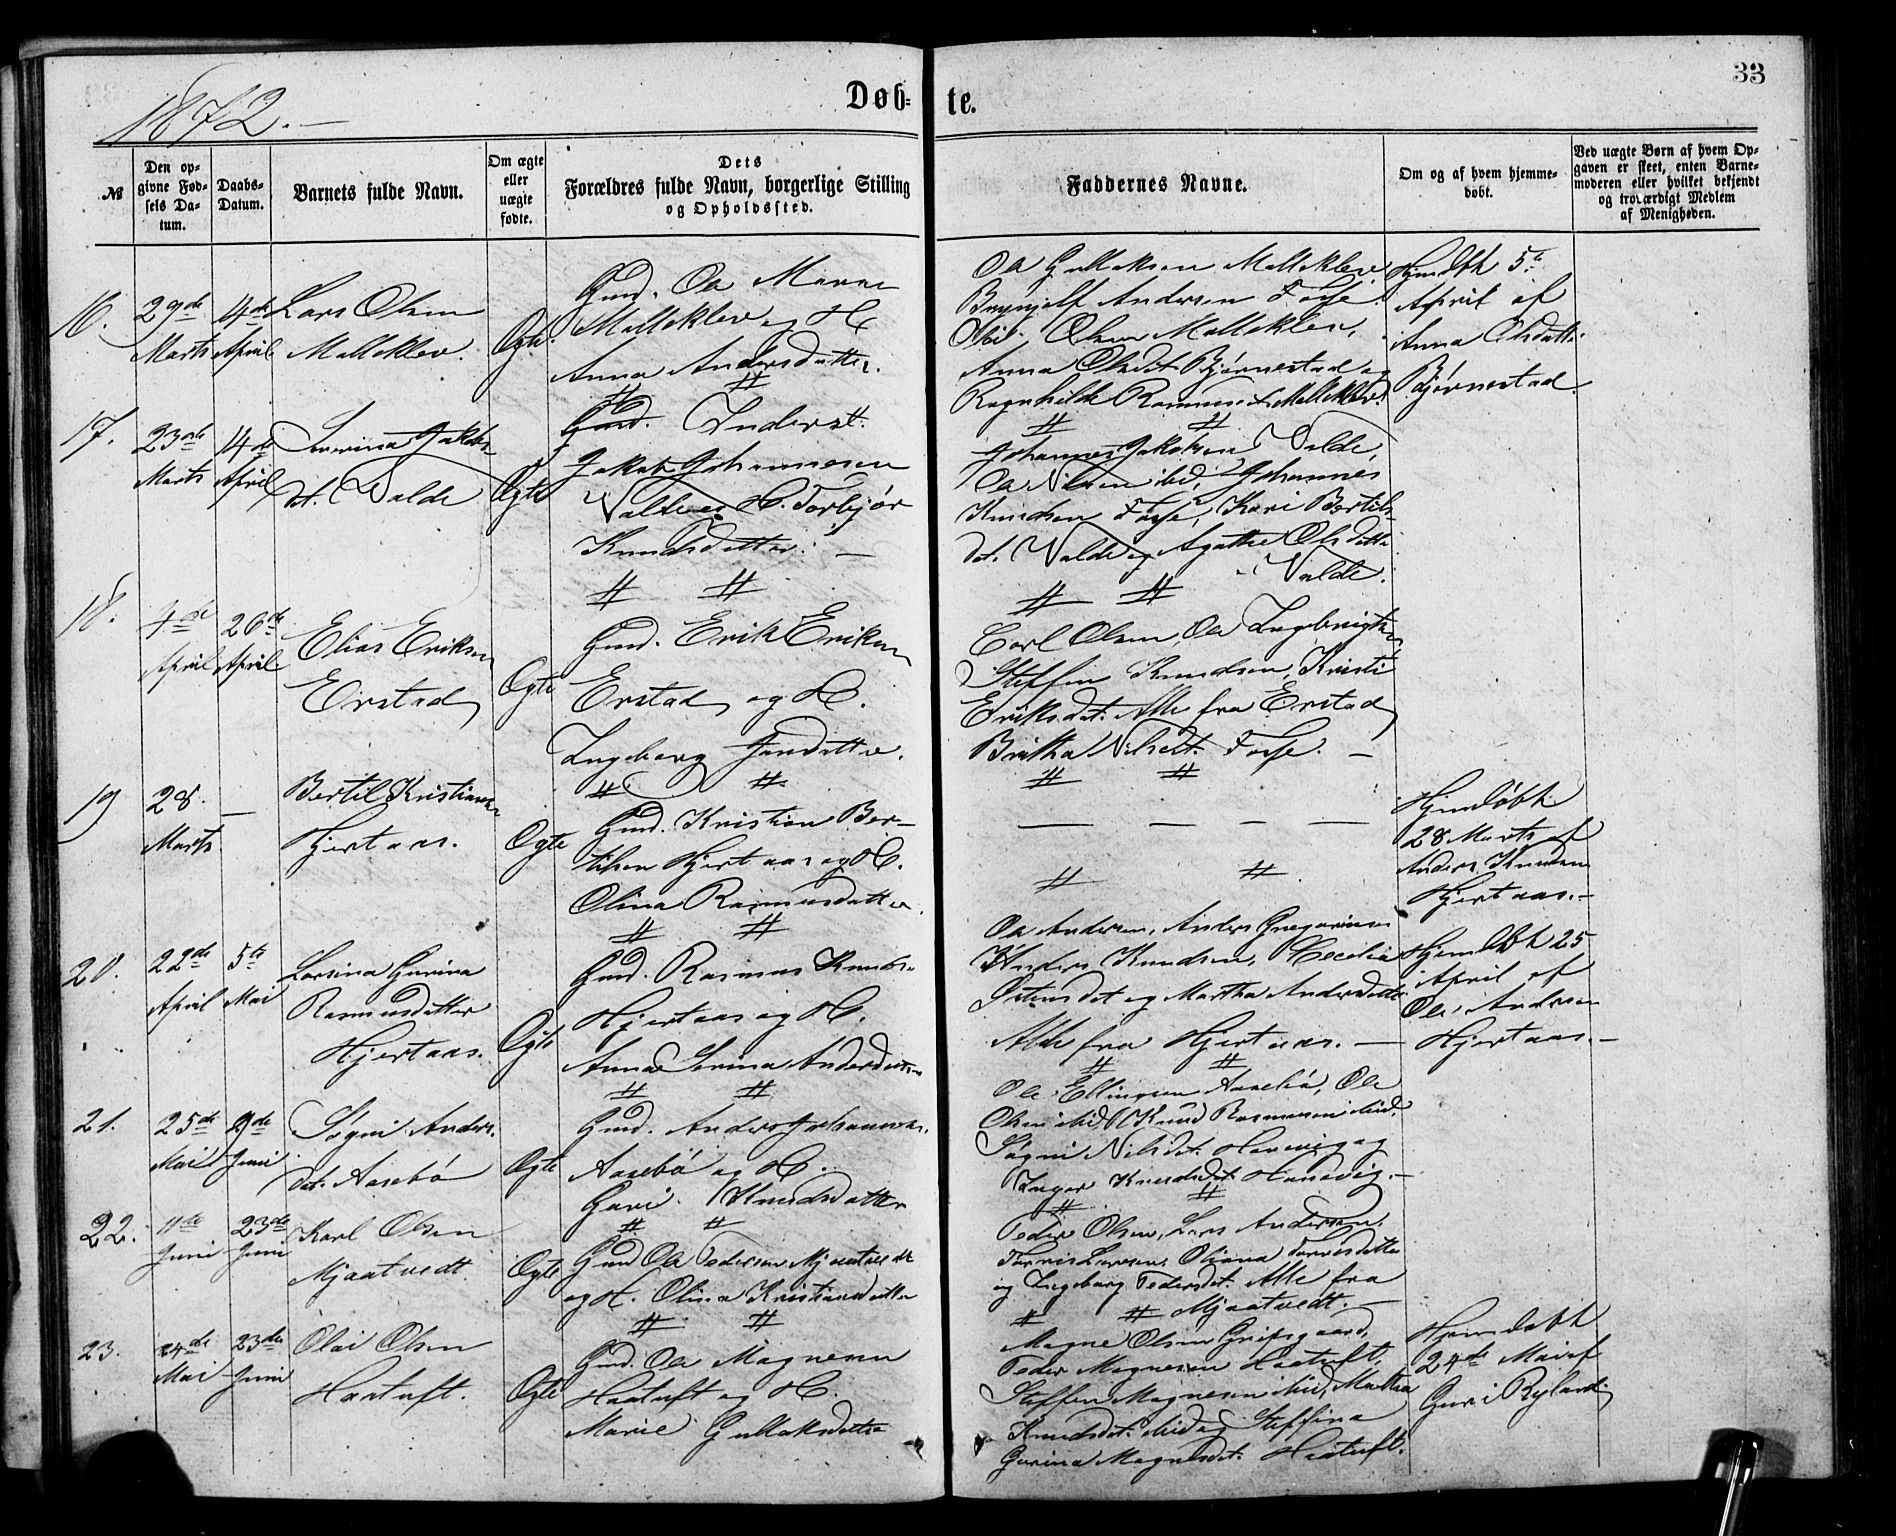 1872.—
Døb-
te.
33
№
Den op-
givne Fød-
sels Da-
tum.
Daabs-
Datum.
Barnets fulde Navn.
Om ægte
eller
uægte
fødte.
Dets
Forældres fulde Navn, borgerlige Stilling
og Opholdssted.
Faddernes Navne.
Om og af hvem hjemme-
døbt.
Ved uægte Børn af hvem Op-
gaven er skeet, enten Barne-
moderen eller hvilket bekjendt
og troværdigt Medlem
af Menigheden.
16.
29de
Marts
4de
April
Lars Olsen
Molleklev.
Ægte
Gmd. Ole
Molleklev og H.
Anna Andersdatter.
Ole Gullaksen Molleklev,
Brynjulf Andersen Fosse
Olsen Molleklev,
Anna Olsdt. Bjørnestad og
Ragnhilde Rasmusdt. Molleklev.
Hjmdøbt 5te
April af
Anna Olsdatter
Bjørnestad.
17.
23de
Marts
4de
April
Severina Jakobs-
dt. Valde
Ægte
Inderst.
Jakob Johannesen
Valde og H. Torbjør
Knudsdatter. —
Johannes Jakobsen Valde,
Ole Nilsen ibd, Johannes
Knudsen Fosse, Kari Bertils-
dt. Valde og Agathe Olsdatter
Valde.
18.
4de
April
26de
April
Elias Eriksen
Eirstad
Ægte
Gmd. Erik Eriksen
Eirstad og H.
Ingeborg Jonsdatter.
Carl Olsen, Ole Ingebrigtsen
Steffen Knudsen, Kristi
Eriksdt. Alle fra Eirstad
Britha Nilsdt. Fosse. —
19
28.
Marts
—
Bertil Kristiansen
Hjertaas.
Ægte
Gmd. Kristian Ber-
tilsen Hjertaas og H.
Olina Rasmusdatter.
— — — — —
Hjemdøbt
28 Marts af
Anders Knudsen
Hjertaas. —
20.
22de
April
5te
Mai
Larsina Gurina
Rasmusdatter
Hjertaas.
Ægte
Gmd. Rasmus Knuds.
Hjertaas og H.
Anna Serina Andersdatter
Ole Andersen, Anders Gregoriusen
Anders Knudsen, Cecelia
Østensdt og Martha Andersdatter
Alle fra Hjertaas. —
Hjemdøbt 25
April af
Ole Andersen
Hjertaas. —
21.
25de
Mai
9de
Juni
Søgni Anders.
dt. Aasebø
Ægte
Gmd. Anders Johannes.
Aasebø og H.
Guri Knudsdatter
Ole Ellingsen Aasebø, Ole
Olsen ibid, Knud Rasmusen ibid.
Søgni Nilsdt. Hanevig og
Inger Knudsdt. Hanevig. —
22.
11te
Juni
23de
Juni
Karl Olsen
Mjaatvedt.
Ægte
Gmd Ole Pedersen Mjaatvedt
og H. Olina Kristiansdatter
Peder Olsen, Lars Andersen.
Torris Larsen, Oliana Torrisdatter
og Ingeborg Pedersdt. Alle fra
Mjaatvedt. —
23.
24de
Mai
23de
Juni
Olai Olsen
Haatuft.
Ægte
Gmd. Ole Magnesen
Haatuft og H.
Marie Gullaksdatter
Magne Olsen Gripsgaard,
Peder Magnesen Haatuft,
Steffen Magnesen ibid, Martha
Knudsdt. ibid og Steffina
Gurina Magnesdt. Haatuft.
Hjemdøbt
24de Mai af
Guri Ryland